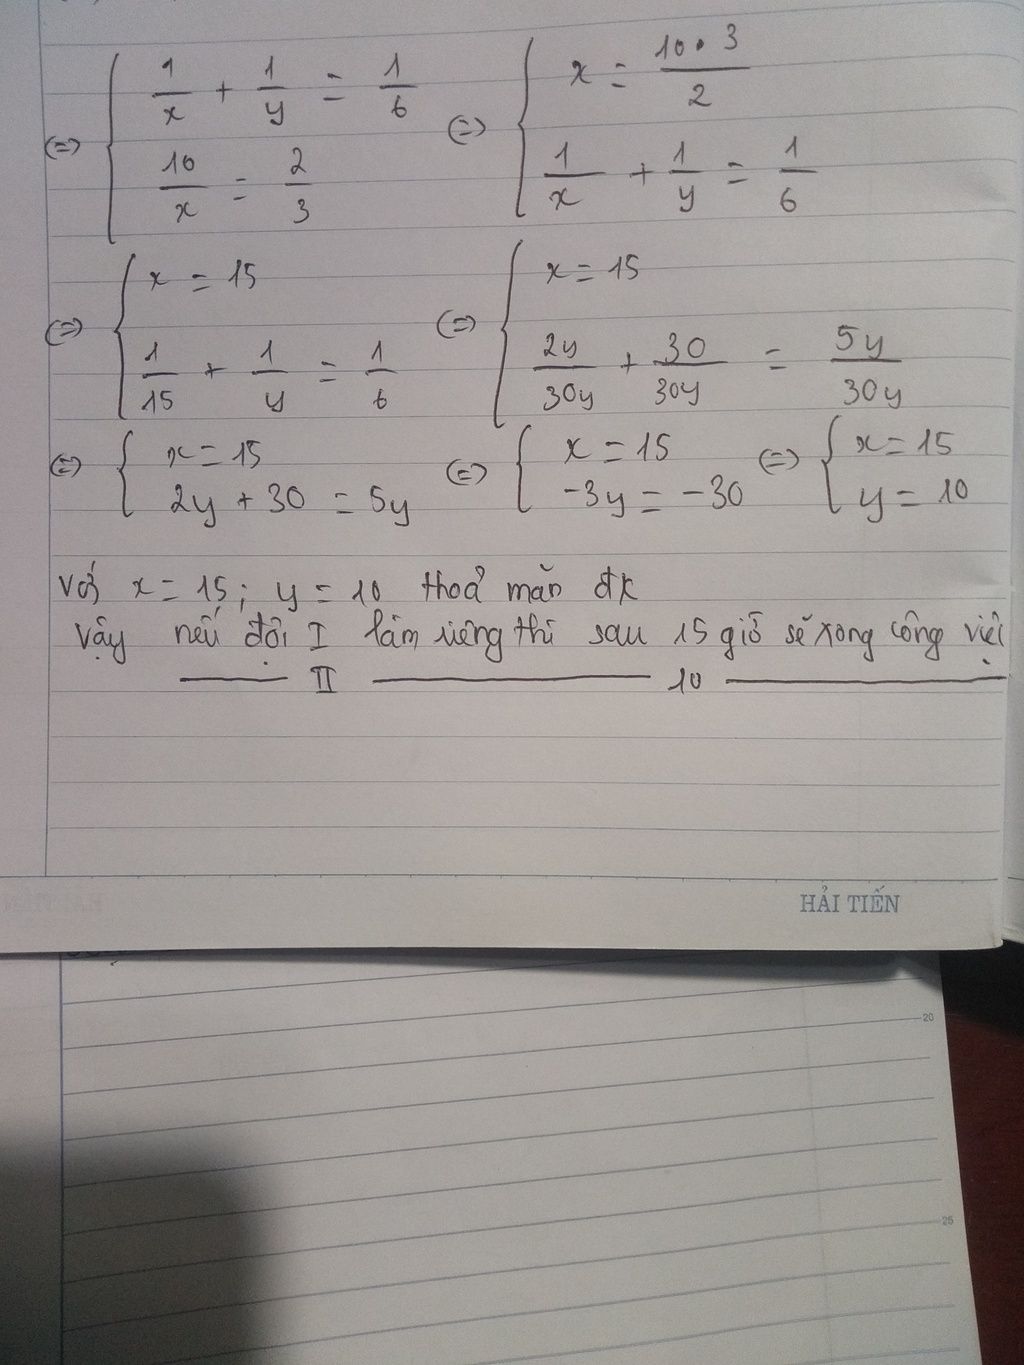 ⇔ { 1/x + 1/y = 1/6 ⇔ { x = 10.3/2
10/x = 2/3 1/x + 1/y = 1/6
⇔ { x = 15 ⇔ { x = 15
1/15 + 1/y = 1/6 2y/30y + 30/30y = 5y/30y
⇔ { x = 15 ⇔ { x = 15 ⇔ { x = 15
2y + 30 = 5y -3y = -30 y = 10
với x = 15; y = 10 thoả mãn đk
Vậy nếu đội I làm riêng thì sau 15 giờ sẽ xong công việc
II 10
HẢI TIẾN
20
25